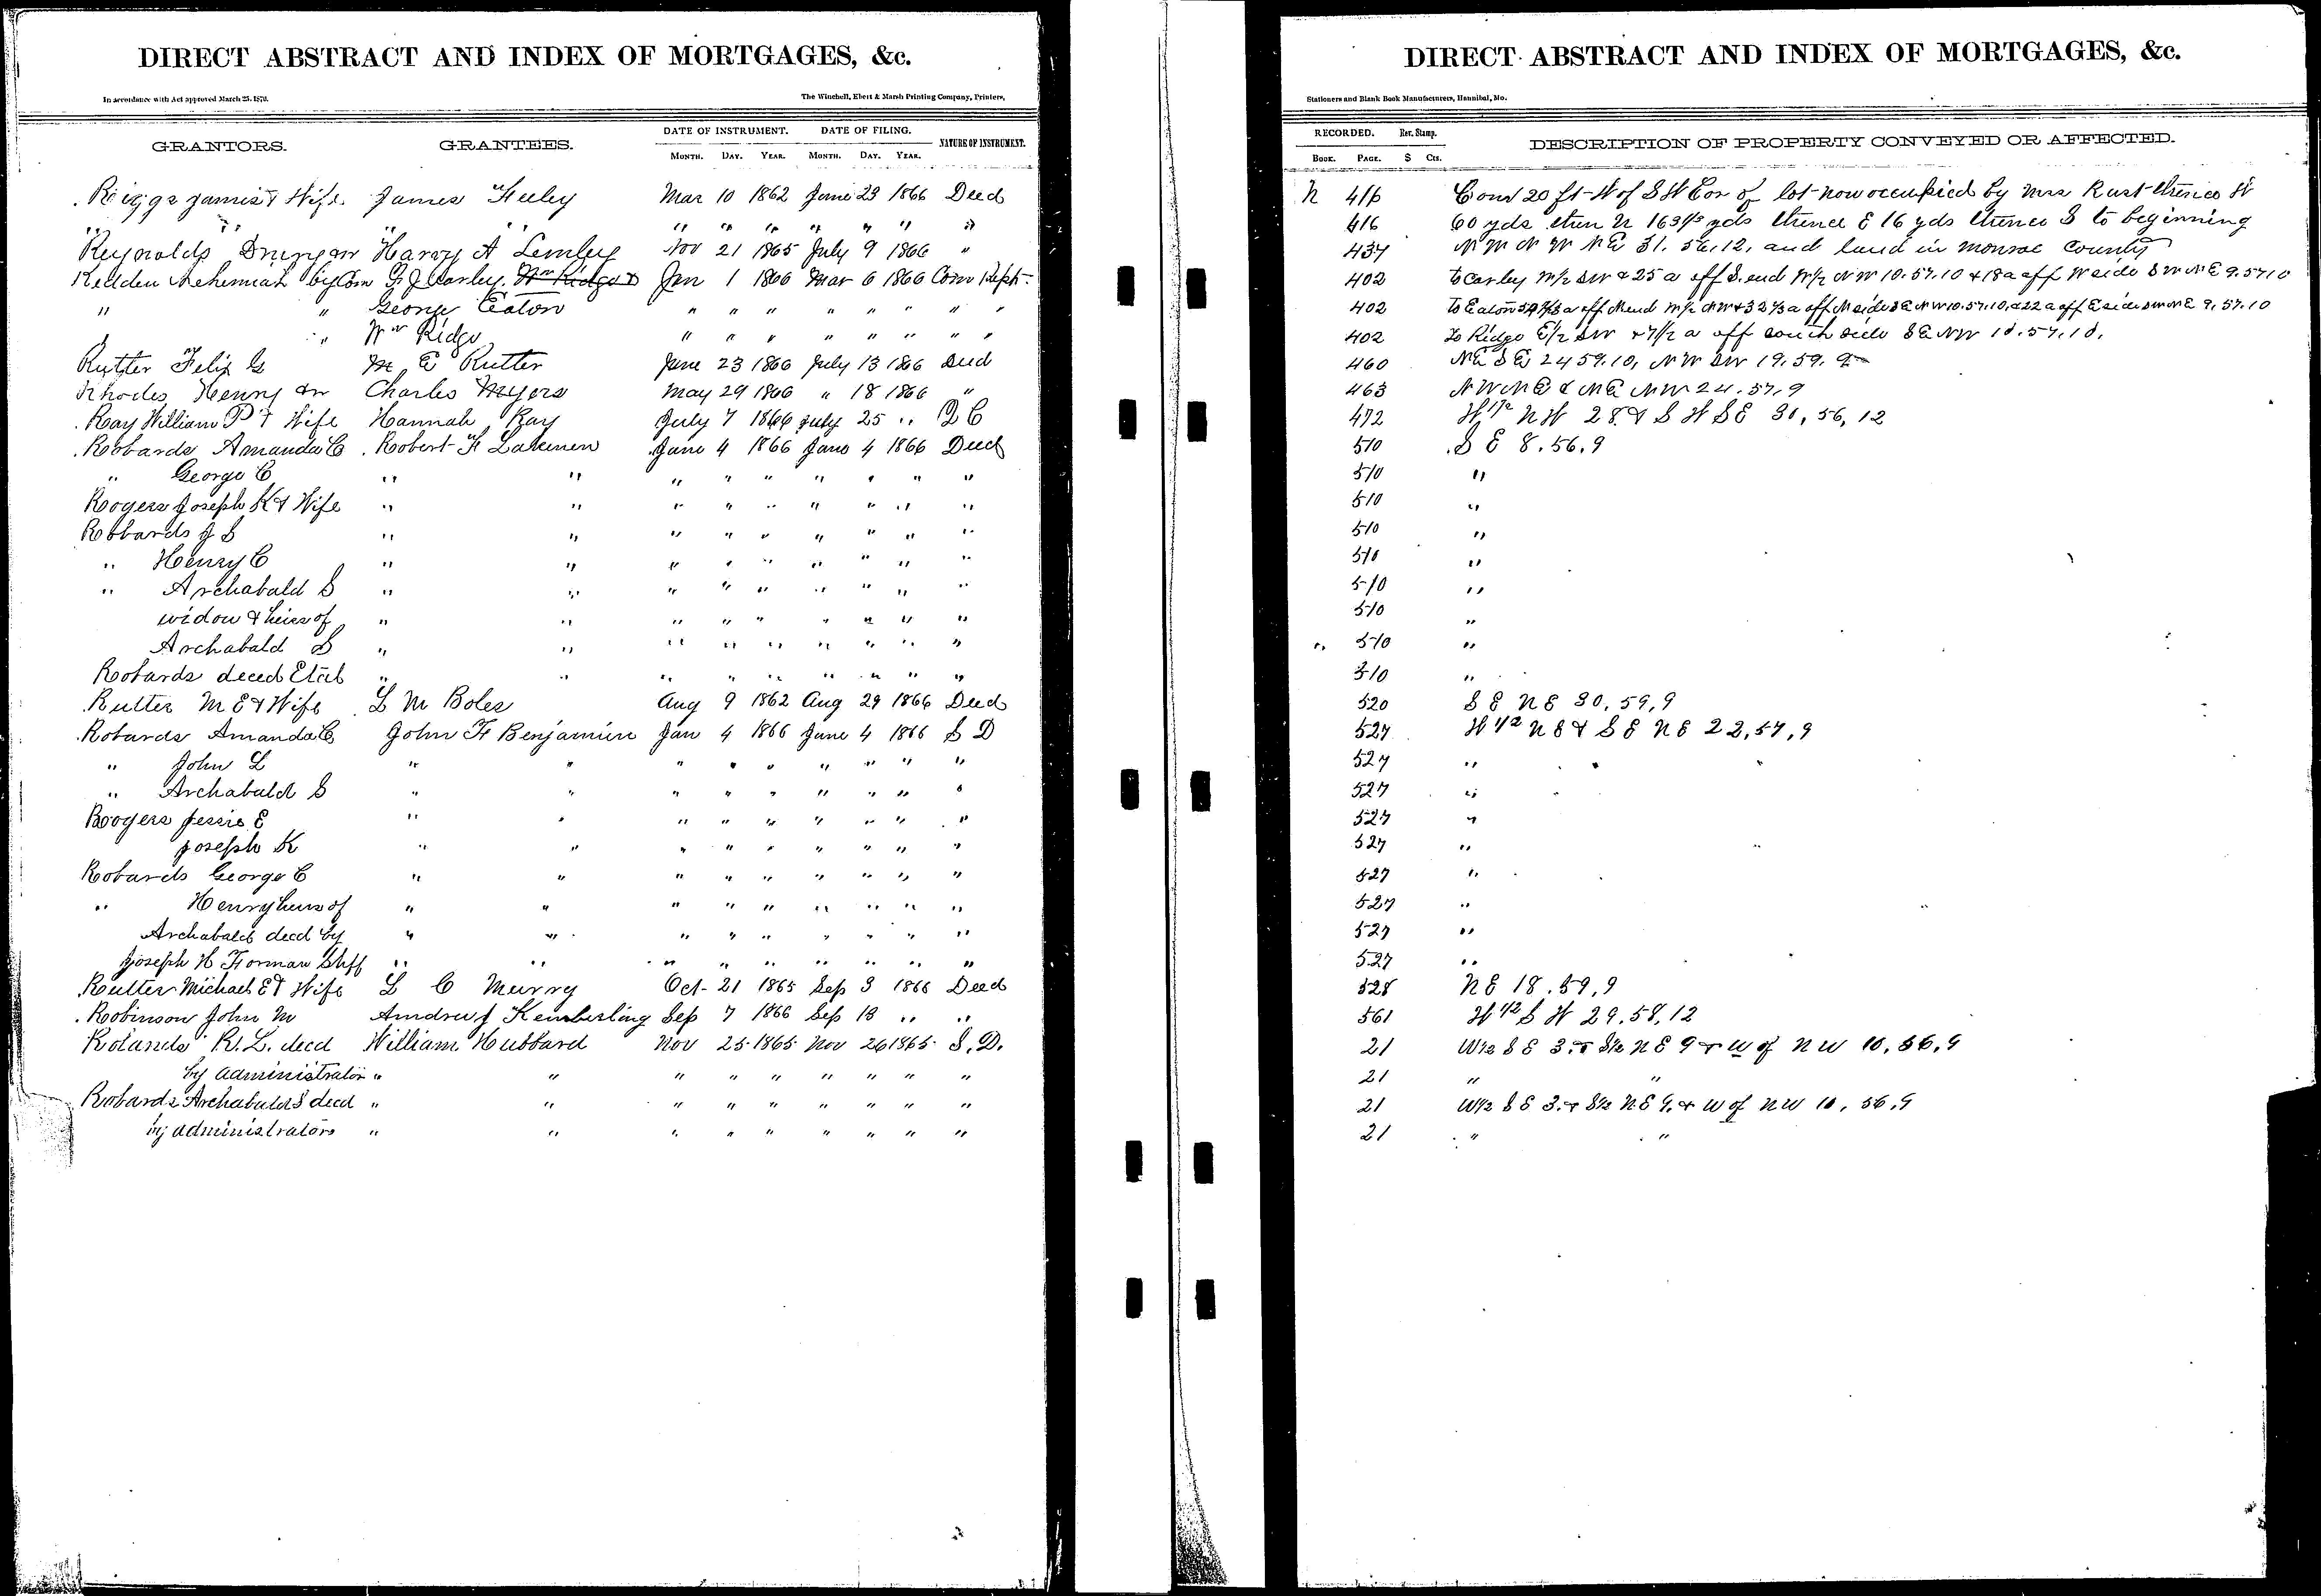 DIRECT ABSTRACT AND INDEX OF MORTGAGES, &c.
In accordance with Act approved March 25, 1870.
The Winchell, Ebert & Marsh Printing Company, Printers,
GRANTORS. GRANTEES. DATE OF INSTRUMENT. DATE OF FILING. NATURE OF INSTRUMENT.
MONTH. DAY. YEAR. MONTH. DAY. YEAR.
Riggs James & Wife James Feeley Mar 10 1862 June 23 1866 Deed
" " " " " " " " " " "
Reynolds Harvy A Lemley Nov 21 1865 July 9 1866 "
Redden Nehemiah by Com G J Carley Wm Ridge Jan 1 1866 Mar 6 1866 Com Rept
" " George Eaton " " " " " " " "
" Wm Ridge " " " " " " " "
Rutter Felix G M E Rutter June 23 1866 July 13 1866 Deed
Rhodes Henry Charles Myers May 29 1866 " 18 1866 "
Ray William P & Wife Hannah Ray July 7 1866 July 25 " Q C
Robards Amanda C Robert F Lakenen June 4 1866 June 4 1866 Deed
" George C " " " " " " " " "
Roogers Joseph K & Wife " " " " " " " " "
Robbards J S " " " " " " " " "
" Henry C " " " " " " " " "
" Archabald S " " " " " " " " "
widow & heirs of " " " " " " " " "
Archabald S " " " " " " " " "
Robards deced Etal " " " " " " " " "
Rutter M E & Wife L M Boles Aug 9 1862 Aug 29 1866 Deed
Robards Amanda C John F Benjamin Jan 4 1866 June 4 1866 S D
" John L " " " " " " " " "
" Archabald S " " " " " " " " "
Roogers Jessie E " " " " " " " " "
Joseph K " " " " " " " " "
Robards George C " " " " " " " " "
" Henry heirs of " " " " " " " " "
Archabald decd by " " " " " " " " "
Joseph H Forman Shff " " " " " " " " "
Rutter Michael E & Wife L C Murry Oct 21 1865 Sep 3 1866 Deed
Robinson John M Andrew J Kemberling Sep 7 1866 Sep 18 " "
Rolands R. L. decd William Hubbard Nov 25 1865 Nov 26 1865 S. D.
by administrator " " " " " " " " "
Robards Archabald S decd " " " " " " " " "
by administrators " " " " " " " " "
DIRECT ABSTRACT AND INDEX OF MORTGAGES, &c.
Stationers and Blank Book Manufacturers, Hannibal, Mo.
RECORDED. Rev. Stamp. DESCRIPTION OF PROPERTY CONVEYED OR AFFECTED.
BOOK. PAGE. $ Cts.
N 416 Comd 20 ft W of S W Cor of lot now occupied by Mrs Rust thence W
416 60 yds then N 163 1/3 yds thence E 16 yds thence S to beginning
437 N W N W N E 31. 56. 12, and land in Monroe County
402 To Carley W 1/2 SW & 25 a off S. end W 1/2 N W 10. 57. 10 & 18 a off W side S W N E 9. 57 10
402 To Eaton a off N end W 1/2 N W & 32 1/3 a off N side S E N W 10. 57. 10, & 22 a off E side S W N E 9. 57. 10
402 To Ridge E 1/2 SW & 7 1/2 a off south side S E NW 10. 57. 10.
460 N E S E 24 59. 10, N W SW 19. 59. 9
463 N W N E & N E N W 24. 57. 9
472 W 1/2 N W 28. & S W S E 30, 56, 12
510 S E 8. 56. 9
510 "
510 "
510 "
510 "
510 "
510 "
" 510 "
510 "
520 S E N E 30, 59, 9
527 W 1/2 N E & S E N E 22, 57, 9
527 "
527 "
527 "
527 "
527 "
527 "
527 "
527 "
528 N E 18. 59, 9
561 W 1/2 S W 29. 58, 12
21 W 1/2 S E 3. & S 1/2 N E 9 & W of N W 10. 56. 9
21 " "
21 W 1/2 S E 3. & S 1/2 N E 9. & W of N W 10. 56. 9
21 " "